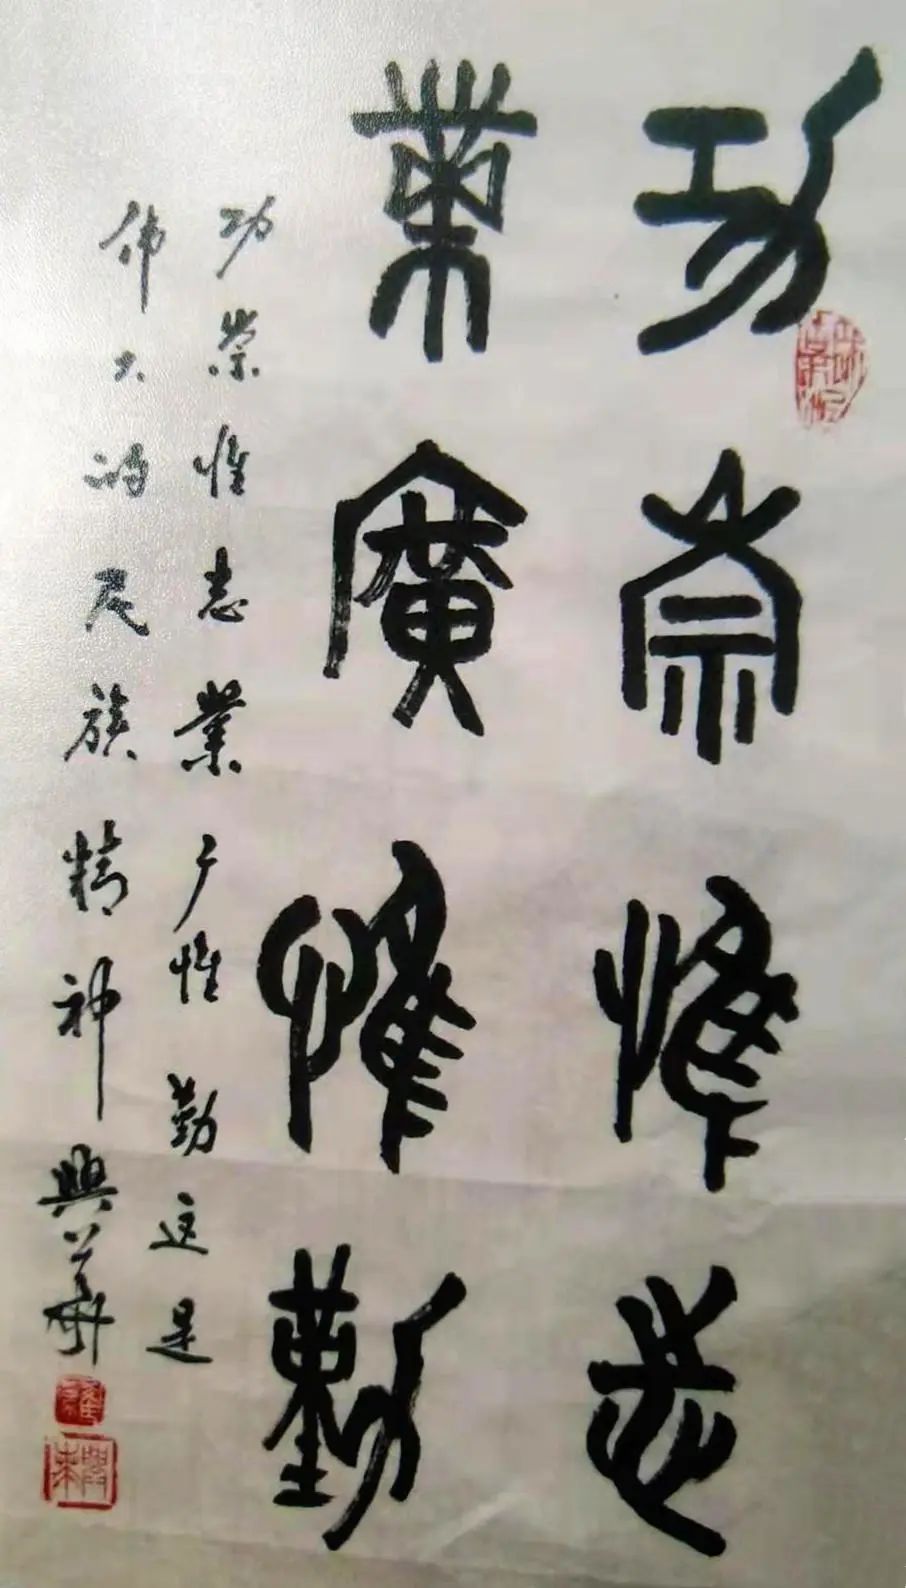 功崇惟志
業廣惟勤
功崇惟志業广惟勤这是
伟大的民族精神興